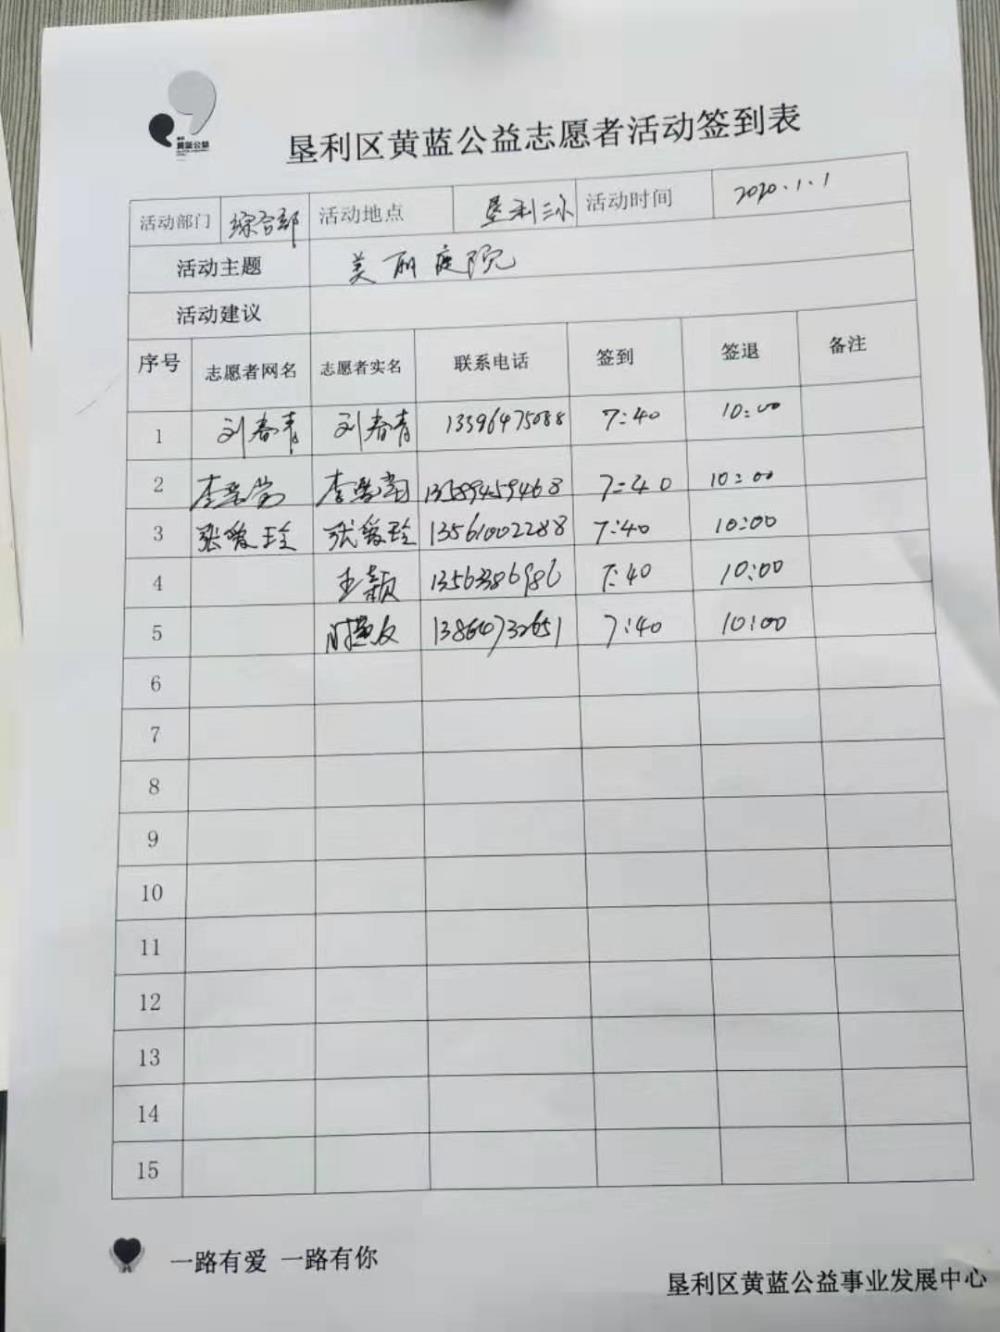 黄蓝公益
垦利区黄蓝公益志愿者活动签到表
活动部门 综合部 活动地点 垦利三小 活动时间 2020.1.1
活动主题 美丽庭院
活动建议
序号 志愿者网名 志愿者实名 联系电话 签到 签退 备注
1 刘春青 刘春青 13396475088 7:40 10:00
2 李 李 13589459468 7:40 10:00
3 张爱玲 张爱玲 13561002288 7:40 10:00
4 王颖 13563386986 7:40 10:00
5 13864732651 7:40 10:00
6
7
8
9
10
11
12
13
14
15
一路有爱 一路有你
垦利区黄蓝公益事业发展中心